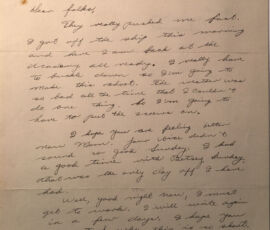 Dear folks,
They really pushed me fast.
I got off the ship this morning
and here I am back at the
academy all ready. I really have
to buckle down so I'm going to
make this short. The weather was
so bad all the time that I couldn't
do one thing. So I'm going to
have to put the screws on.
I hope you are feeling better
now Mom. Your voice didn't
sound so good Sunday. I had
a good time with Sunday,
that was the only day off I have
had.
Well, good night now, I must
get to work. I will write again
in a few days. I hope you
this is so short.